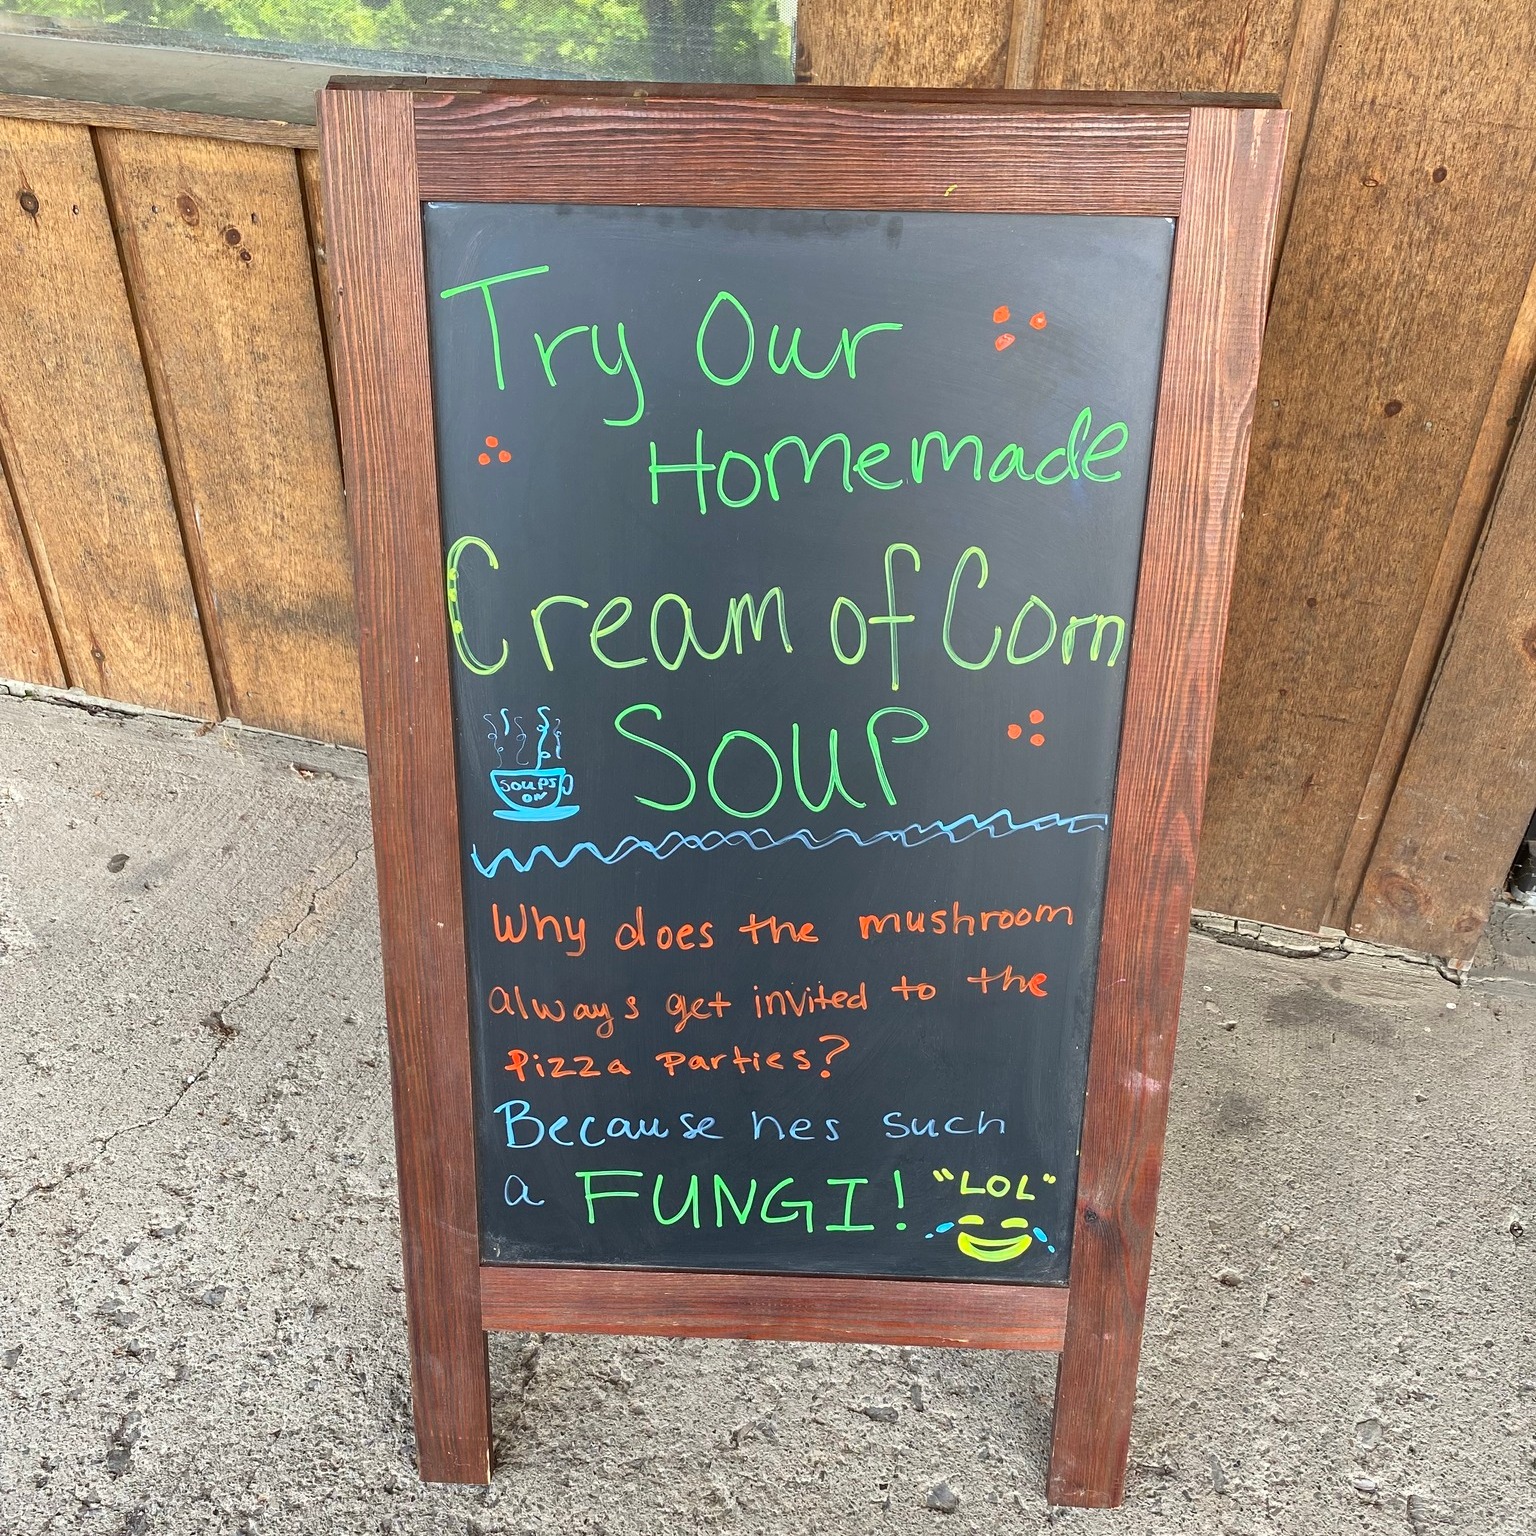 Try Our
Homemade
Cream of Corn
Soup
SOUPS
ON
Why does the mushroom
always get invited to the
Pizza Parties?
Because hes such
a FUNGI! "LOL"